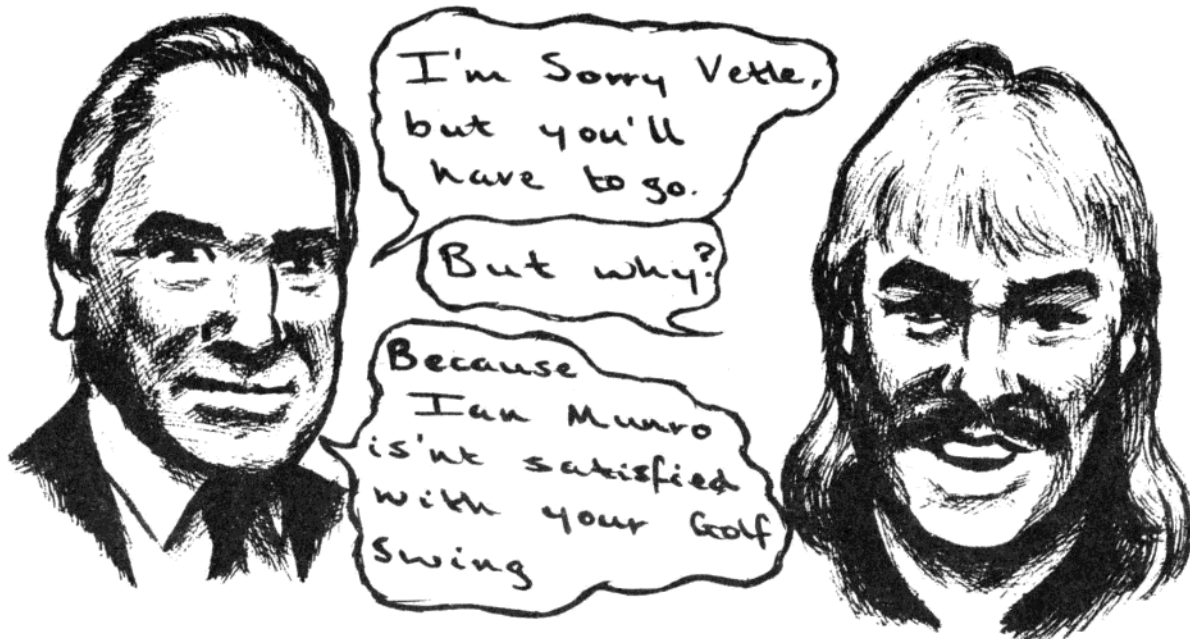 I'm Sorry Vetle,
but you'll
have to go.
But why?
Because
Ian Munro
is'nt satisfied
with your Golf
Swing